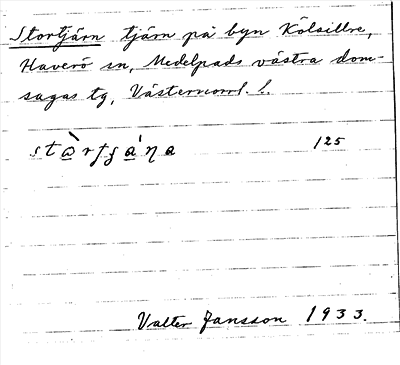 Stortjärn tjärn på byn Kölsillre,
Haverö sn, Medelpads västra dom-
sagas tg, Västernorrl. l.
125
Valter Jansson 1933.